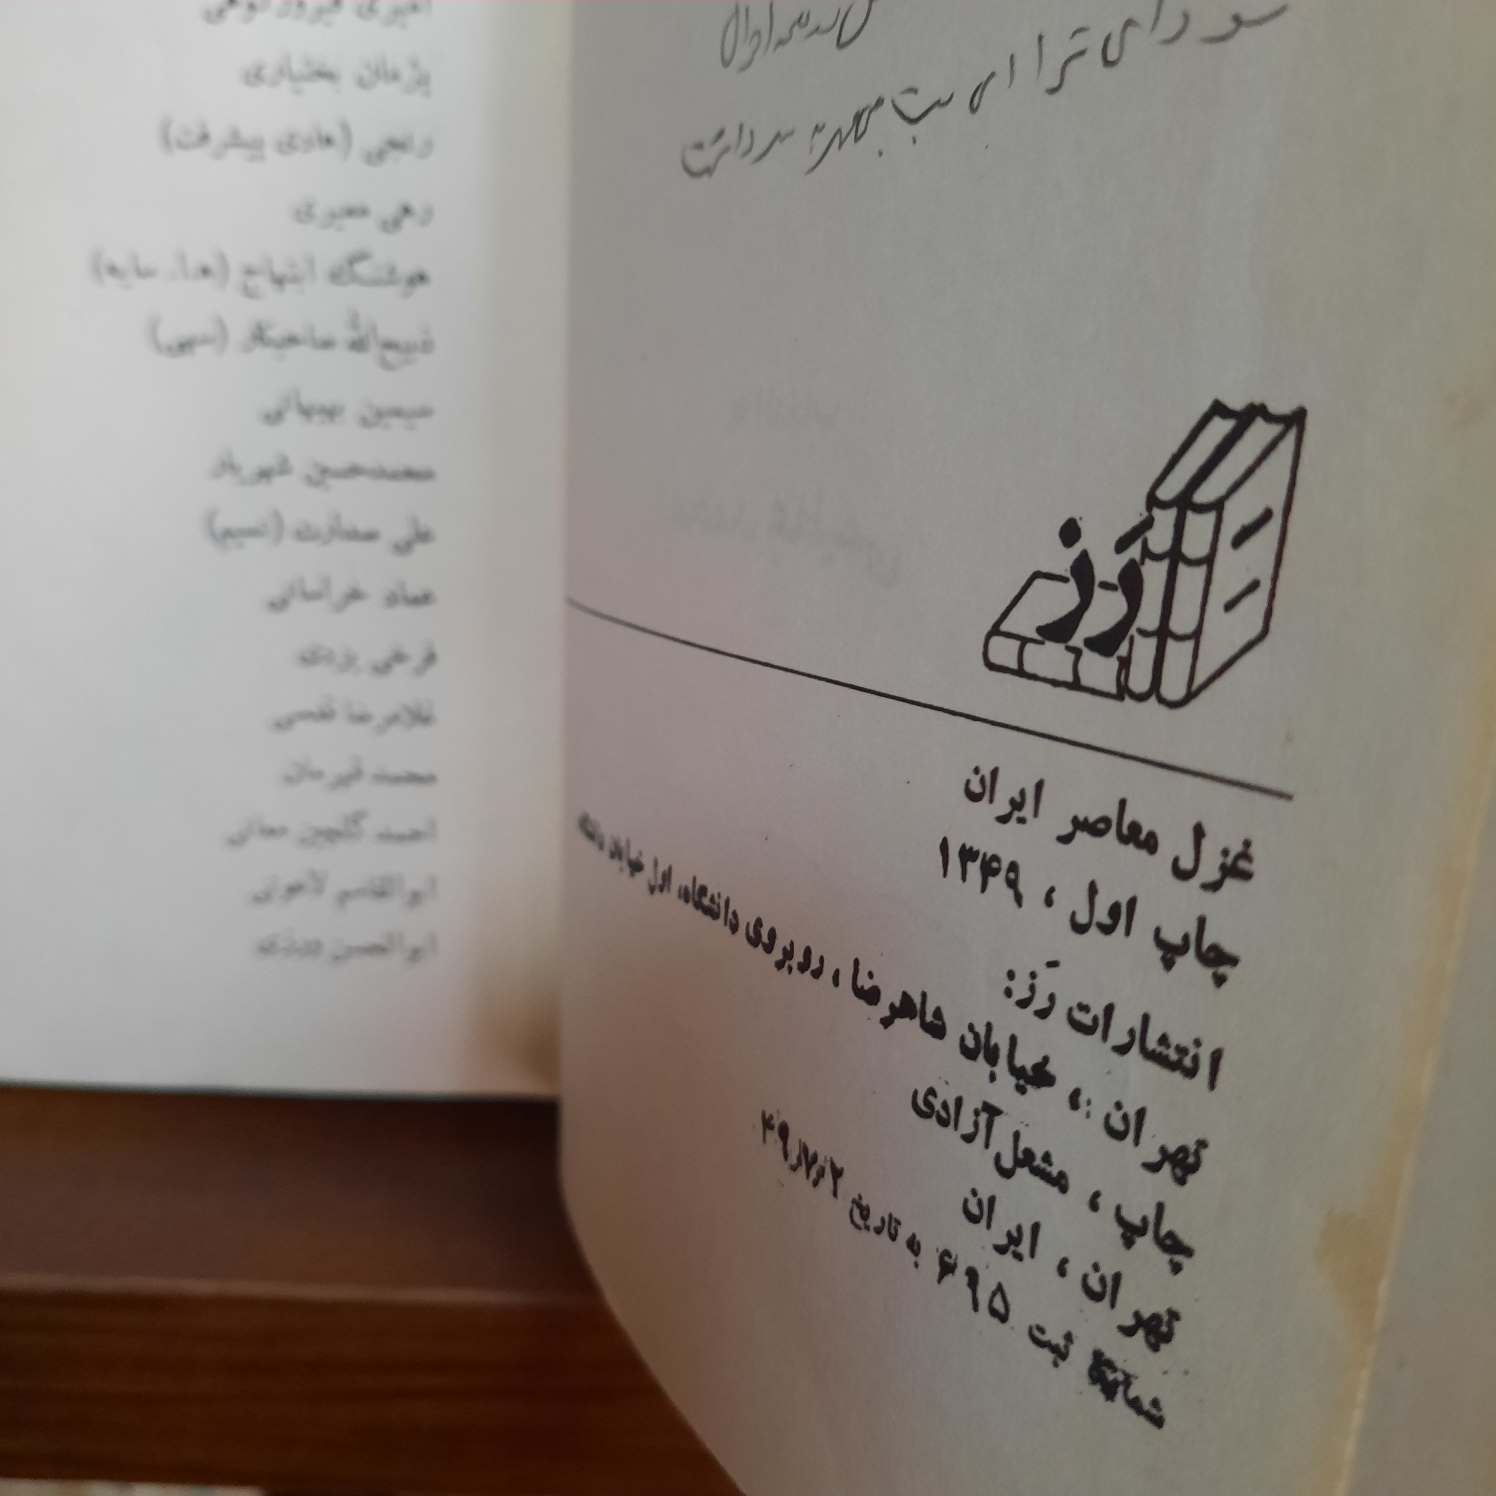 سودای ترا ای بت
رَز
غزل معاصر ایران
چاپ اول، ۱۳۴۹
انتشارات رَز:
تهران، خیابان شاهرضا، روبروی دانشگاه، اول خیابان دانشگاه
چاپ، مشعل آزادی
تهران، ایران
شمارهٔ ثبت ۶۹۵ به تاریخ ۴۹/۷/۲
پژمان بختیاری
رنجی (هادی پیشرفت)
رهی معیری
هوشنگ ابتهاج (ه.ا. سایه)
ذبیح‌الله صاحبکار (سهی)
سیمین بهبهانی
محمدحسین شهریار
علی صدارت (نسیم)
عماد خراسانی
فرخی یزدی
غلامرضا قدسی
محمد قهرمان
احمد گلچین معانی
ابوالقاسم لاهوتی
ابوالحسن ورزی